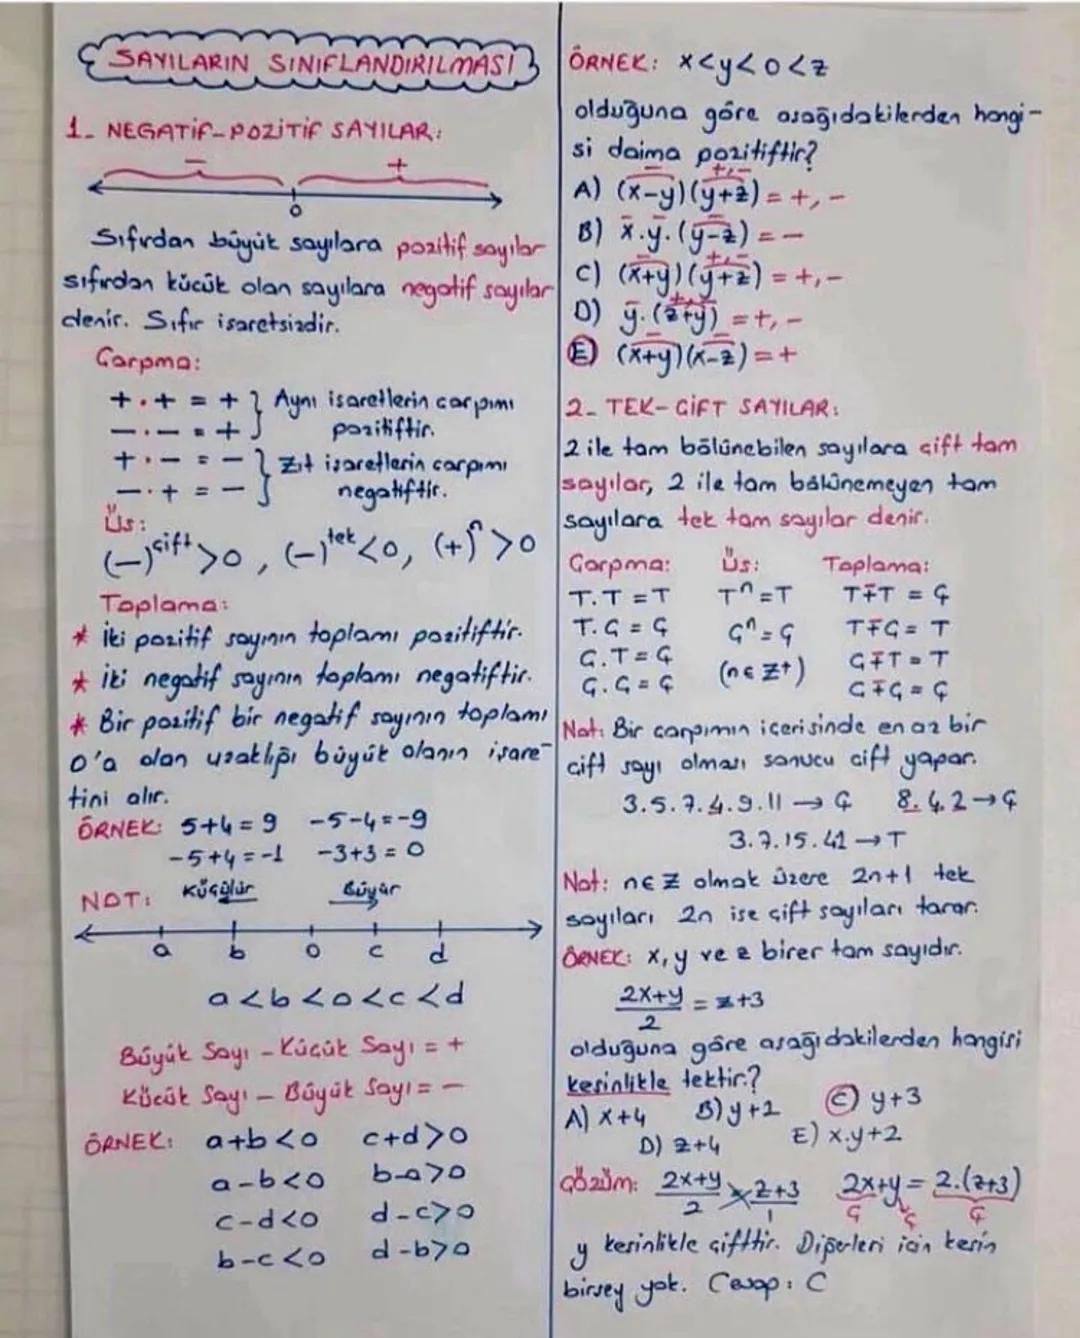 SAYILARIN SINIFLANDIRILMASI
1- NEGATİF-POZİTİF SAYILAR:
- +
0
Sıfırdan büyük sayılara pozitif sayılar
sıfırdan küçük olan sayılara negatif sayılar
denir. Sıfır işaretsizdir.
Çarpma:
+ . + = + } Aynı işaretlerin çarpımı
- . - = + pozitiftir.
+ . - = - } Zıt işaretlerin çarpımı
- . + = - negatiftir.
Üs:
(-)^çift > 0, (-)^tek < 0, (+)^n > 0
Toplama:
* İki pozitif sayının toplamı pozitiftir.
* İki negatif sayının toplamı negatiftir.
* Bir pozitif bir negatif sayının toplamı
0'a olan uzaklığı büyük olanın işare-
tini alır.
ÖRNEK: 5+4=9 -5-4=-9
-5+4=-1 -3+3=0
NOT: Küçülür Büyür
a b 0 c d
a<b<0<c<d
Büyük Sayı - Küçük Sayı = +
Küçük Sayı - Büyük Sayı = -
ÖRNEK: a+b<0 c+d>0
a-b<0 b-a>0
c-d<0 d-c>0
b-c<0 d-b>0
ÖRNEK: x<y<0<z
olduğuna göre aşağıdakilerden hangi-
si daima pozitiftir?
- +,-
A) (x-y)(y+z) = +,-
- - -
B) x.y.(y-z) = -
- +,-
C) (x+y)(y+z) = +,-
- +,-
D) y.(z+y) = +,-
- -
E) (x+y)(x-z) = +
2- TEK-ÇİFT SAYILAR:
2 ile tam bölünebilen sayılara çift tam
sayılar, 2 ile tam bölünemeyen tam
sayılara tek tam sayılar denir.
Çarpma: Üs: Toplama:
T.T=T Tⁿ=T T∓T=Ç
T.Ç=Ç Çⁿ=Ç T∓Ç=T
Ç.T=Ç (n∈Z⁺) Ç∓T=T
Ç.Ç=Ç Ç∓Ç=Ç
Not: Bir çarpımın içerisinde en az bir
çift sayı olması sonucu çift yapar.
3.5.7.4.9.11 → Ç 8.4.2 → Ç
3.7.15.41 → T
Not: n∈Z olmak üzere 2n+1 tek
sayıları 2n ise çift sayıları tarar.
ÖRNEK: x, y ve z birer tam sayıdır.
2x+y/2 = z+3
olduğuna göre aşağıdakilerden hangisi
kesinlikle tektir?
A) x+4 B) y+2 C) y+3
D) z+4 E) x.y+2
Çözüm: 2x+y/2 z+3/1 2x+y = 2.(z+3)
Ç Ç Ç
y kesinlikle çifttir. Diğerleri için kesin
birşey yok. Cevap: C